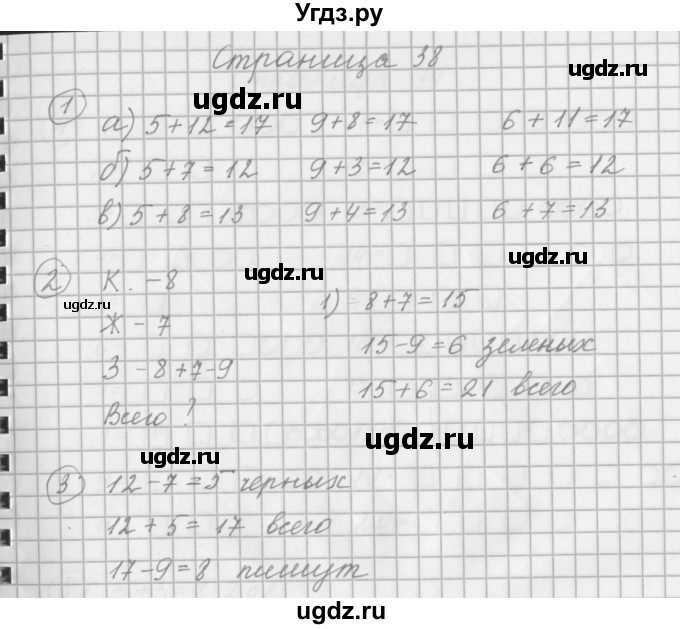 Угдз.ру
Страница 38
1 а) 5+12=17 9+8=17 6+11=17
б) 5+7=12 9+3=12 6+6=12
в) 5+8=13 9+4=13 6+7=13
2 К. -8 1) 8+7=15
Ж - 7 15-9=6 зеленых
З - 8+7-9 15+6=21 всего
Всего ?
3 12-7=5 черных
12+5= 17 всего
17-9=8 пишут
ugdz.ru
ugdz.ru
ugdz.ru
ugdz.ru
ugdz.ru
ugdz.ru
ugdz.ru
ugdz.ru
ugdz.ru
ugdz.ru